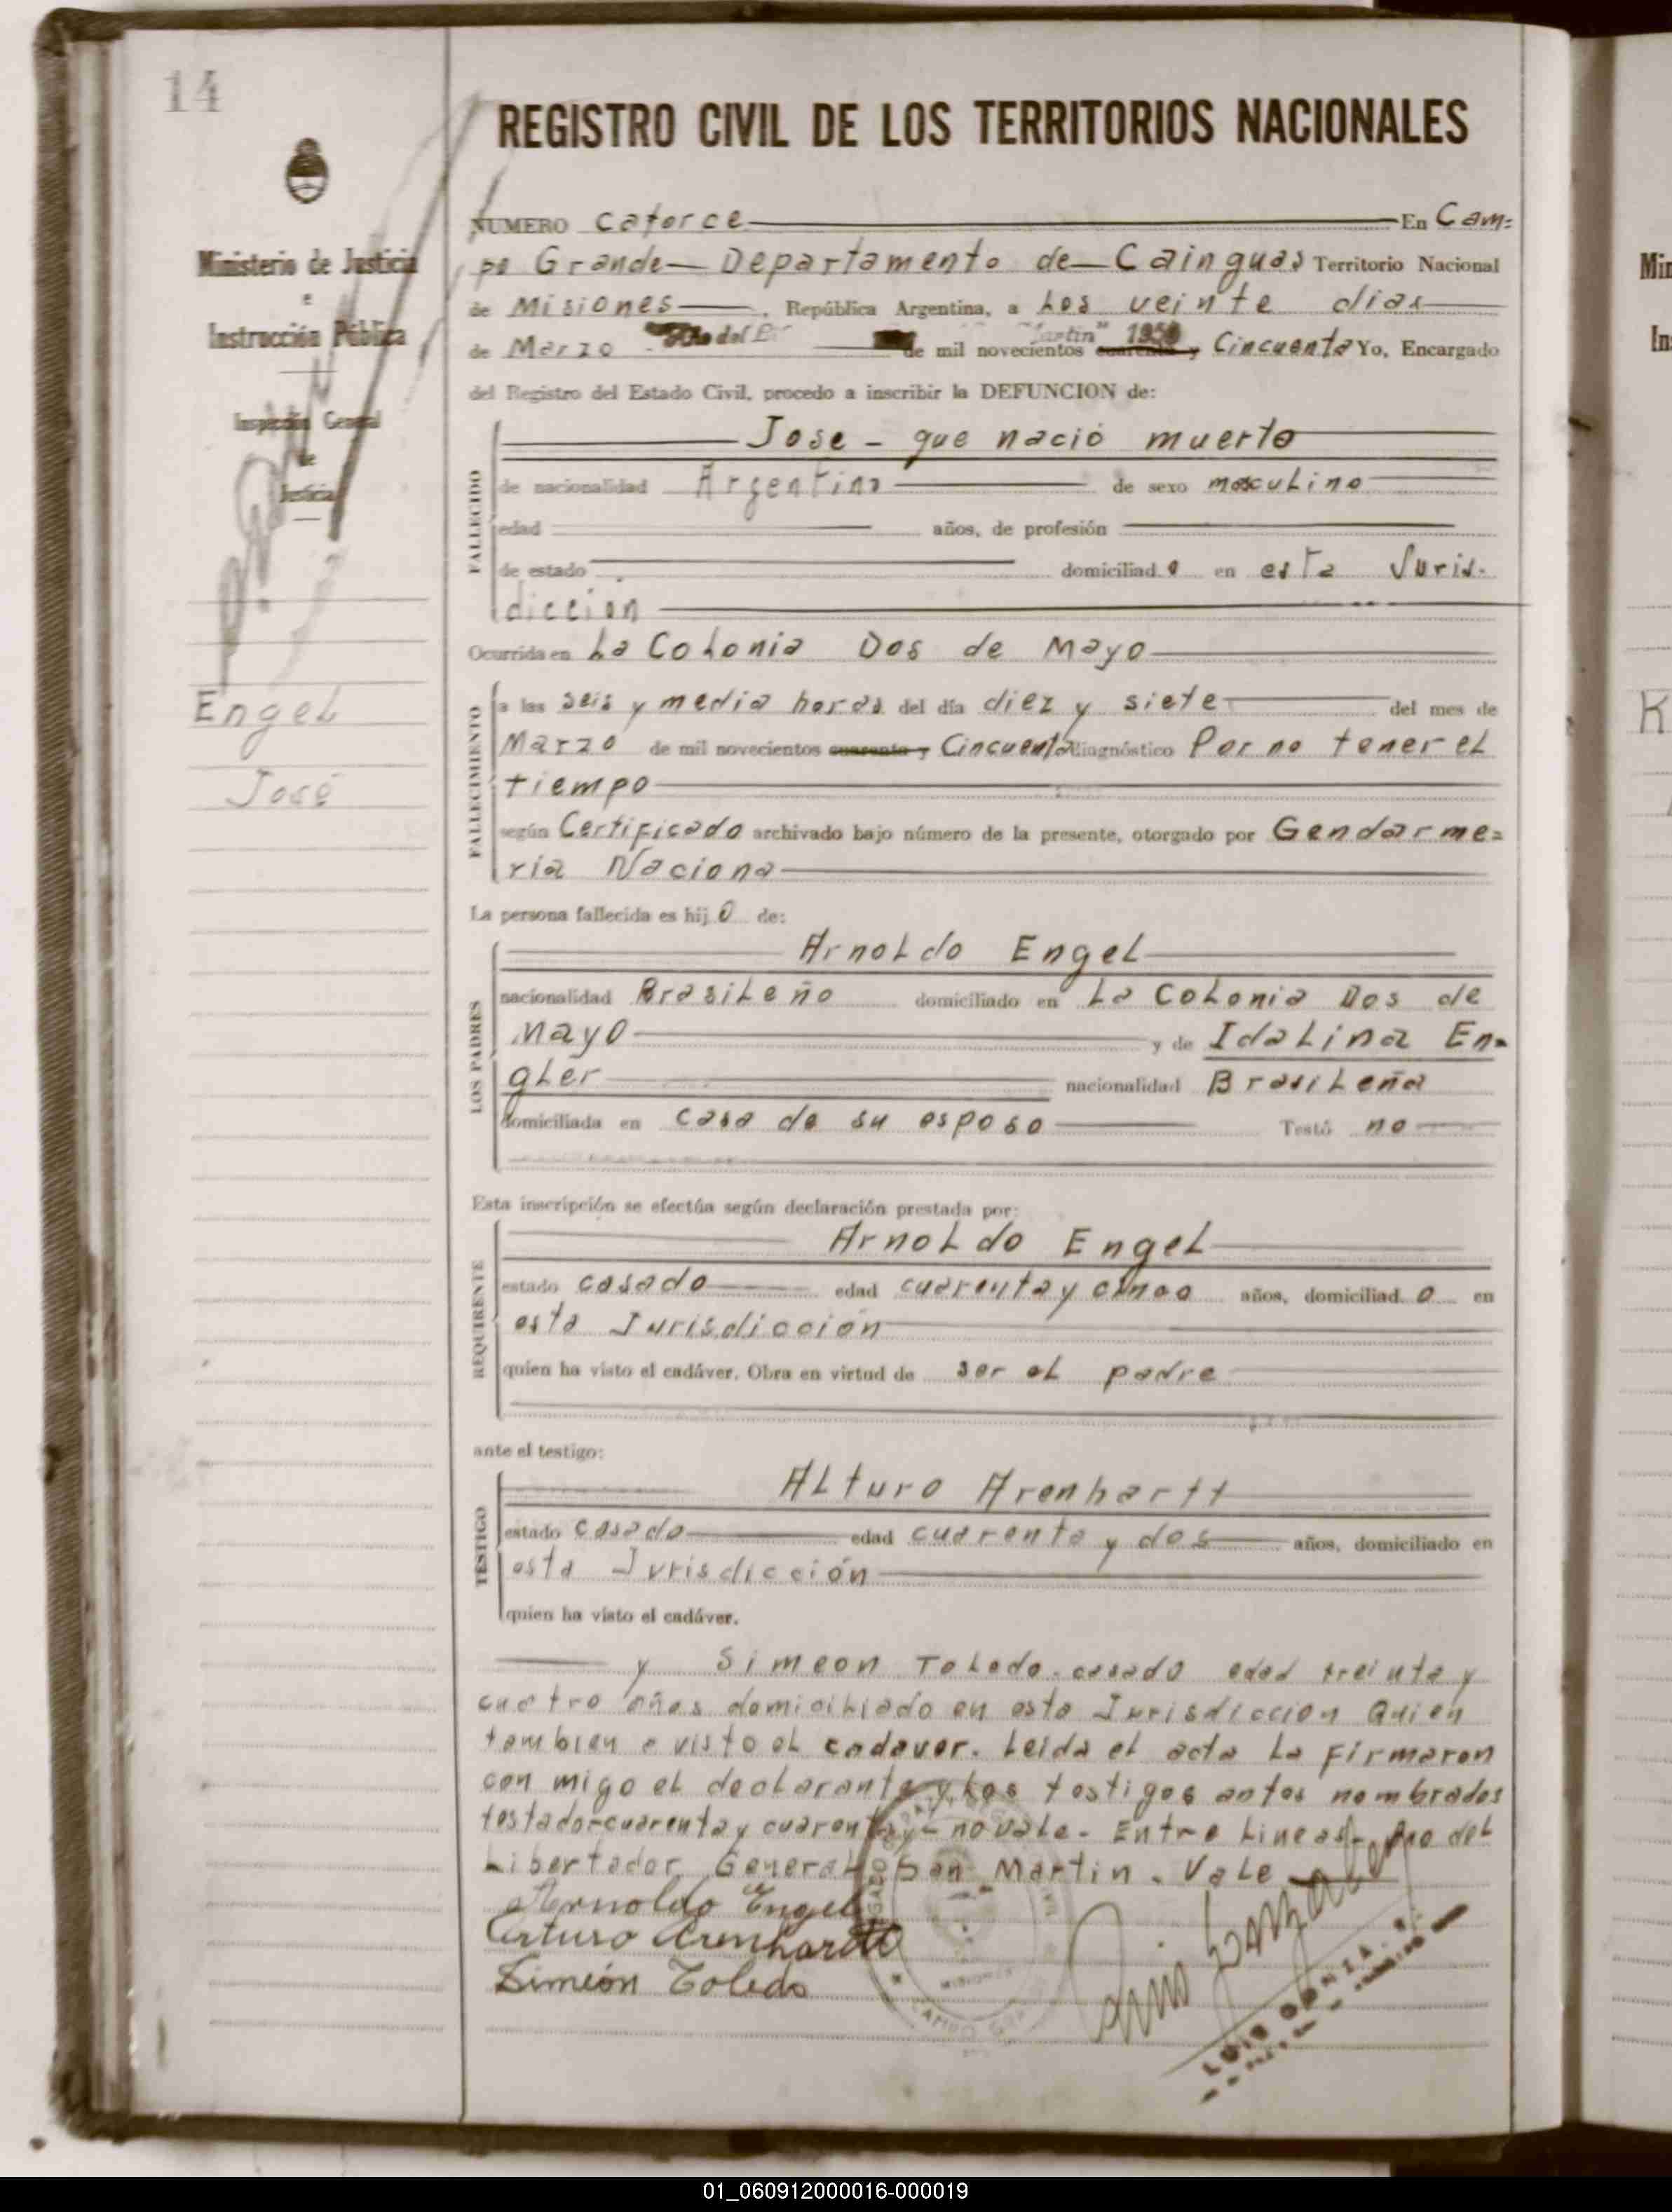 14
REGISTRO CIVIL DE LOS TERRITORIOS NACIONALES
Ministerio de Justicia
e
Instrucción Pública
Inspección General
de
Justicia
Engel
José
NUMERO catorce En Cam=
po Grande Departamento de Cainguas Territorio Nacional
de Misiones, República Argentina, a Los veinte dias
de Marzo "Año del Martin" 1950 de mil novecientos cuarenta y Cincuenta Yo, Encargado
del Registro del Estado Civil, procedo a inscribir la DEFUNCION de:
FALLECIDO
Jose - que nació muerto
de nacionalidad Argentino de sexo masculino
edad años, de profesión
de estado domiciliad o en esta Juris-
diccion
Ocurrida en La Colonia Dos de Mayo
FALLECIMIENTO
a las seis y media horas del día diez y siete del mes de
Marzo de mil novecientos cuarenta y Cincuenta diagnóstico Por no tener el
tiempo
según Certificado archivado bajo número de la presente, otorgado por Gendarme=
ria Naciona
La persona fallecida es hij o de:
LOS PADRES
Arnoldo Engel
nacionalidad Brasileño domiciliado en La Colonia Dos de
Mayo y de Idalina En-
gler nacionalidad Brasileña
domiciliada en casa de su esposo Testó no
Esta inscripción se efectúa según declaración prestada por:
REQUIRENTE
Arnoldo Engel
estado casado edad cuarenta y cinco años, domiciliad o en
esta Jurisdicción
quien ha visto el cadáver. Obra en virtud de ser el padre
ante el testigo:
TESTIGO
Alturo Arenhartt
estado casado edad cuarenta y dos años, domiciliado en
esta Jurisdicción
quien ha visto el cadáver.
y Simeon Toledo. casado edad treinta y
cuatro años domiciliado en esta Jurisdiccion Quien
tambien e visto el cadaver. Leida el acta la firmaron
con migo el declarante y los testigos antes nombrados
testado-cuarenta y cuarenta y - no vale - Entre Lineas - Año del
Libertador General San Martin. Vale
Arnoldo Engel
Arturo Arenhardt
Simeón Toledo
Luis Gonzalez
01_060912000016-000019